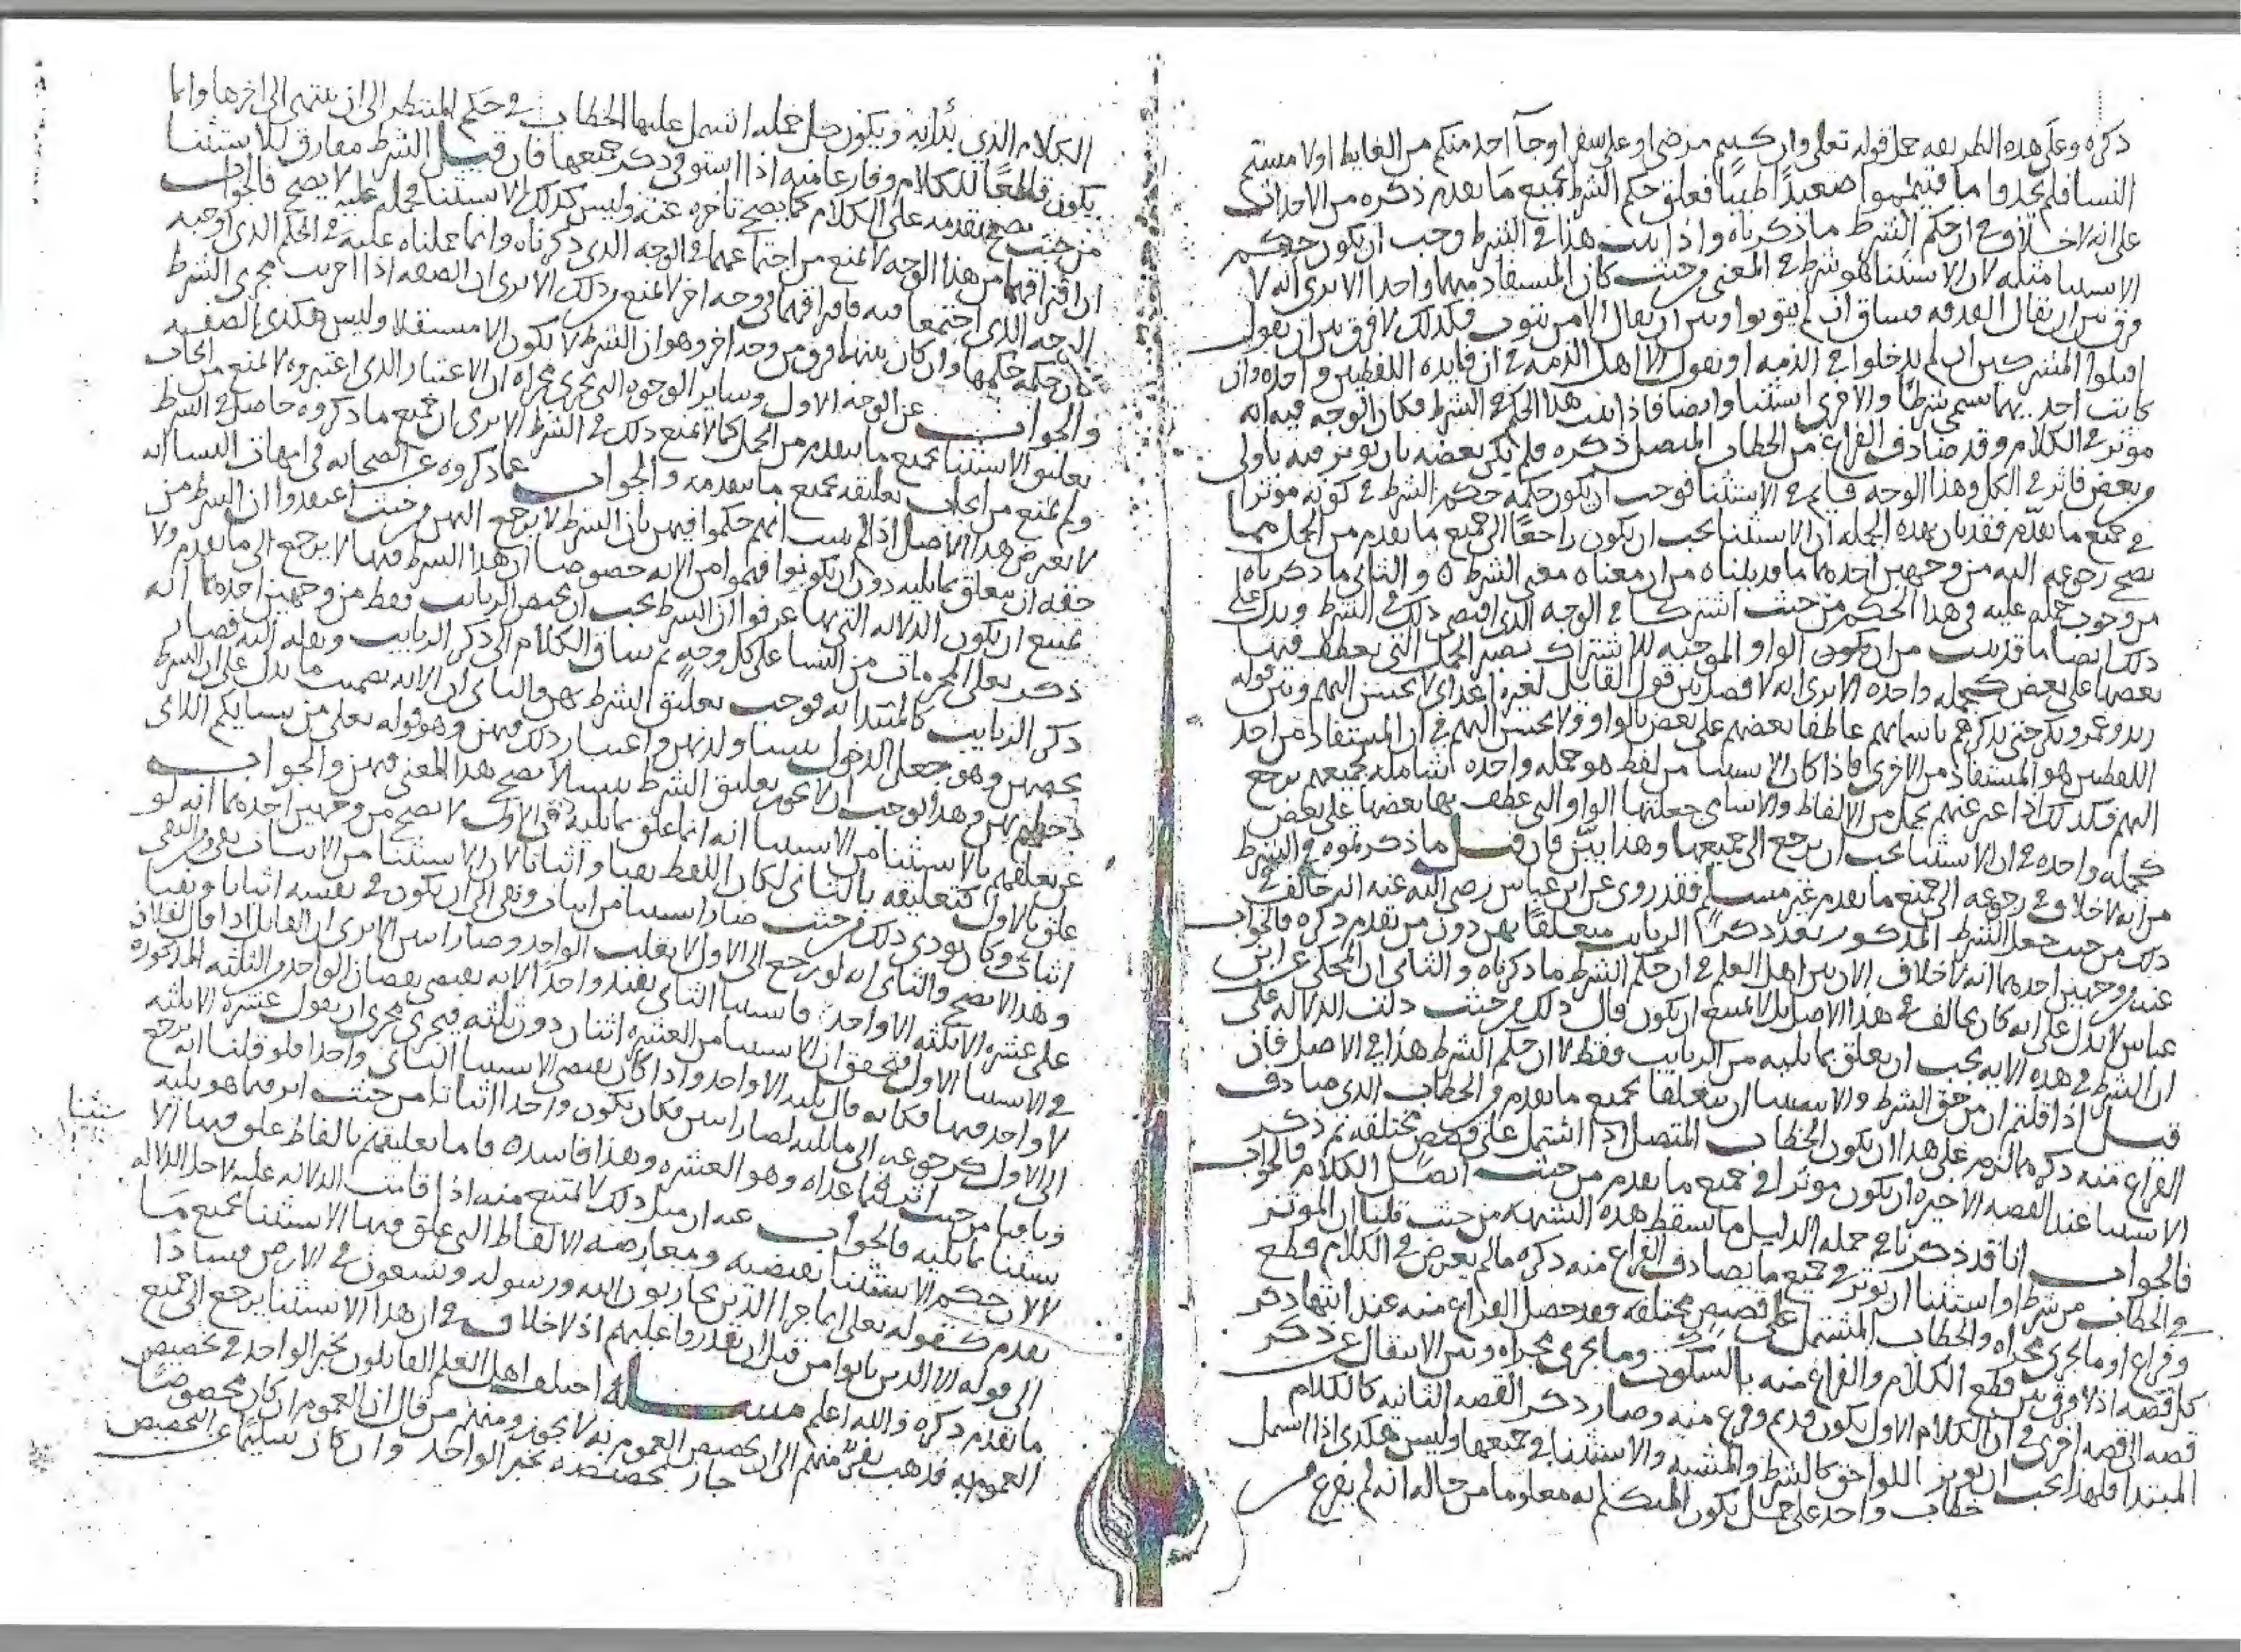 ذكره وعلى هذه الطريقه حمل قوله تعلى وان كنتم مرضى او على سفر او جآ احد منكم من الغايط او لامستم
النسا فلم تجدوا ما فتيمموا صعيدًا طيبًا فعلق حكم الشرط بجميع ما تقدم ذكره من الاحداث
على انه لا خلاف في ان حكم الشرط ما ذكرناه واذا ثبت هذا في الشرط وجب ان يكون حكم
الاستثنا مثله لان الاستثنا هو شرط في المعنى من حيث كان المستفاد منهما واحدا الا ترى انه لا
فرق بين ان يقال القذفه فساق ان لم يتوبوا وبين ان يقال الا من يتوب فكذلك لا فرق بين ان يقول
اقتلوا المشركين ان لم يدخلوا في الذمه او نقول الا اهل الذمه في ان فايده اللفظين واحده وان
كانت احديهما تسمى شرطًا والاخرى استثنا وايضا فاذا ثبت هذا الحكم في الشرط فكان الوجه فيه انه
موثر في الكلام وقد صادف الفراغ من الخطاب المتصل ذكره فلم يكن بعضه بان يوثر فيه باولى
من بعض فاثر في الكل وهذا الوجه قايم في الاستثنا فوجب ان يكون حكمه حكم الشرط في كونه موثرا
في جميع ما تقدم فقد بان بهذه الجمله ان الاستثنا يجب ان يكون راجعًا الى جميع ما تقدم من الجمل مما
يصح رجوعه اليه من وجهين احدهما ما قد بيناه من ان معناه معنى الشرط والثانى ما ذكرناه
من وجوب حمله عليه في هذا الحكم من حيث اشتركا في الوجه الذى اقتضى ذلك في الشرط ويدل على
ذلك ايضا ما قد ثبت من ان يكون الواو الموجبه للاشتراك تصير الجمل التى يعطف فيها
بعضها على بعض كجمله واحده الا ترى انه لا فصل بين قول القايل لغيره اعداى لا تحسن اليهم وبين قوله
زيد وعمرو وبكر حتى يذكرهم باسمايهم عاطفا بعضهم على بعض بالواو ولا تحسن اليهم في ان المستفاد من احد
اللفظين هو المستفاد من الاخرى فاذا كان الاستثنا من لفظ هو جمله واحده شامله لجميعهم يرجع
اليهم فكذلك اذا عبر عنهم بجمل من الالفاظ والاسامى جعلتها الواو التى عطف بها بعضها على بعض
كجمله واحده في ان الاستثنا يجب ان يرجع الى جميعها وهذا بيّن فان قيل ما ذكرتموه في الشرط
من انه لا خلاف في رجوعه الى جميع ما تقدم غير مسلم فقد روى عن ابن عباس رضى الله عنه انه خالف في
ذلك من حيث جعل الشرط المذكور بعد ذكر الربايب متعلقًا بهن دون من تقدم ذكره فالجواب
عنه من وجهين احدهما انه لا خلاف الان بين اهل العلم في ان حكم الشرط ما ذكرناه والثانى ان المحكى عن ابن
عباس لا يدل على انه كان يخالف في هذا الاصل بل لا يمتنع ان يكون قال ذلك من حيث دلت الدلاله على
ان الشرط في هذه الايه يجب ان يعلق بما يليه من الربايب فقط لا ان حكم الشرط هذا في الاصل فان
قيل اذا قلتم ان من حق الشرط والاستثنا ان يتعلقا بجميع ما تقدم من الخطاب الذى صادف
الفراغ منه ذكرهما لزم على هذا ان يكون الخطاب المتصل اذا اشتمل على قصص مختلفه ثم ذكر
الاستثنا عند القصه الاخيره ان يكون موثرا في جميع ما تقدم من حيث اتصل الكلام فالجواب
فالجواب انا قد ذكرنا في جمله الدليل ما يسقط هذه الشبهه من حيث قلنا ان الموثر
في الخطاب من شرط او استثنا ان يوثر في جميع ما يصادف الفراغ منه ذكره ما لم يعرض في الكلام قطع
وفراغ او ما يجرى مجراه والخطاب المشتمل على قصص مختلفه فقد حصل الفراغ منه عند انتها ذكر
كل قصه اذ لا فرق بين قطع الكلام والفراغ منه بالسكوت وما يجرى مجراه وبين الانتقال عن ذكر
قصه الى قصه اخرى في ان الكلام الاول يكون قد تم وفرغ منه وصار ذكر القصه الثانيه كالكلام
المبتدا فلهذا يجب ان يوثر اللواحق كالشرط والمشيه والاستثنا في جميعها وليس هكذى اذا اشتمل
خطاب واحد على جمل يكون المتكلم به معلوما من حاله انه لم يفرغ من
الكلام الذي بُدا به ويكون كل جمله اشتمل عليها الخطاب في حكم المنتظر الى ان ينتهى الى اخرها وانما
يكون قاطعًا للكلام وفارغا منه اذا استوفى ذكر جميعها فان قيل الشرط مفارق للاستثنا
من حيث يصح تقدمه على الكلام كما يصح تاخره عنه وليس كذلك الاستثنا فحمله عليه لا يصح فالجواب
ان افتراقهما من هذا الوجه لا يمنع من اجتماعهما في الوجه الذى ذكرناه وانما حملناه عليه في الحكم الذى اوجبه
الوجه الذى اجتمعا فيه فافتراقهما في وجه اخر لا يمنع من ذلك الا ترى ان الصفه اذا اجريت مجرى الشرط
كان حكمه حكمها وان كان بينهما فرق من وجه اخر وهو ان الشرط لا يكون الا مستقبلا وليس هكذى الصفه
والجواب عن الوجه الاول وساير الوجوه التى تجرى مجراه ان الاعتبار الذى اعتبروه لا يمنع من ايجاب
تعليق الاستثنا بجميع ما تقدم من الجمل كما لا يمنع ذلك في الشرط الا ترى ان جميع ما ذكروه حاصل في الشرط
ولم يمنع من ايجاب تعليقه بجميع ما تقدمه والجواب عما ذكروه عن الصحابه في امهات النسا انه
لا يعترض هذا الاصل اذ لم يثبت انهم حكموا فيهن بان الشرط لا يرجع اليهن من حيث اعتقدوا ان الشرط من
حقه ان يتعلق بما يليه دون ان يكونوا فهموا من الايه خصوصا ان هذا الشرط فيها لا يرجع الى ما تقدم ولا
يمتنع ان يكون الدلاله التى بها عرفوا ان الشرط يجب ان يخص الربايب فقط من وجهين احدهما انه
ذكر تعلى المحرمات من النسا على كل وجهٍ ثم ساق الكلام الى ذكر الربايب ونقله اليه فصار
ذكر الربايب كالمبتدا به فوجب تعليق الشرط بهن والثانى ان الايه تضمنت ما يدل على ان الشرط
يخصهن وهو جعل الدخول بنسا ولدنهن واعتبار ذلك فيهن وهو قوله تعلى من نسايكم اللاتى
دخلتم بهن وهذا يوجب ان لا يجوز تعليق الشرط بنسا لا يصح هذا المعنى فيهن والجواب
عن تعلقهم بالاستثنا من الاستثنا انه انما علق بما يليه لا الاول لا يصح من وجهين احدهما انه لو
علق بالاول كتعليقه بالثانى لكان اللفظ نفيا واثباتا لان الاستثنا من الاثبات نفى ومن النفى
اثبات وكان يودى ذلك من حيث صار استثنا من اثبات ونفى الى ان يكون في نفسه اثباتا ونفيا
وهذا لا يصح والثانى انه لو رجع الى الاول لا نقلب الواحد وصار اثنين الا ترى ان القايل اذا قال لفلان
على عشره الا ثلثه الا واحد فاستثنا الثانى يفيد واحدًا لانه يقتضى نقصان الواحد من الثلثه المذكوره
في الاستثنا الاول فتحقق ان الاستثنا من العشره اثنان دون ثلثه فيجرى مجرى ان يقول عشره الا ثلثه
الا واحد منها فكانه قال ثلثه الا واحد واذا كان مقتضى الاستثنا الثانى واحدا فلو قلنا انه يرجع
الى الاول كرجوعه الى ما يليه لصار اثنين فكان يكون واحدا اثباتا من حيث اثر فيما هو يليه
ستثنا
ونافيا من حيث اثر فيما عداه وهو العشره وهذا فاسد فاما تعليقهم بالفاظ علق فيها الا
ستثنا بما يليه فالجواب عنه ان مثل ذلك لا يمتنع منه اذا قامت الدلاله عليه لاجل الدلاله
لا لان حكم الاستثنا يقتضيه ومعارضه الالفاظ التى علق فيها الاستثنا بجميع ما
تقدم كقوله تعلى انما جزا الذين يحاربون الله ورسوله ويسعون في الارض فسادًا
الى قوله الا الذين تابوا من قبل ان تقدروا عليهم اذ لا خلاف في ان هذا الاستثنا يرجع الى جميع
ما تقدم ذكره والله اعلم مسـله اختلف اهل العلم القايلون بخبر الواحد في تخصيص
العموم به فذهب نفر منهم الى ان تخصيص العموم به لا يجوز ومنهم من قال ان العموم ان كان مخصوصًا
جاز تخصيصه بخبر الواحد وان كان سليمًا عن التخصيص